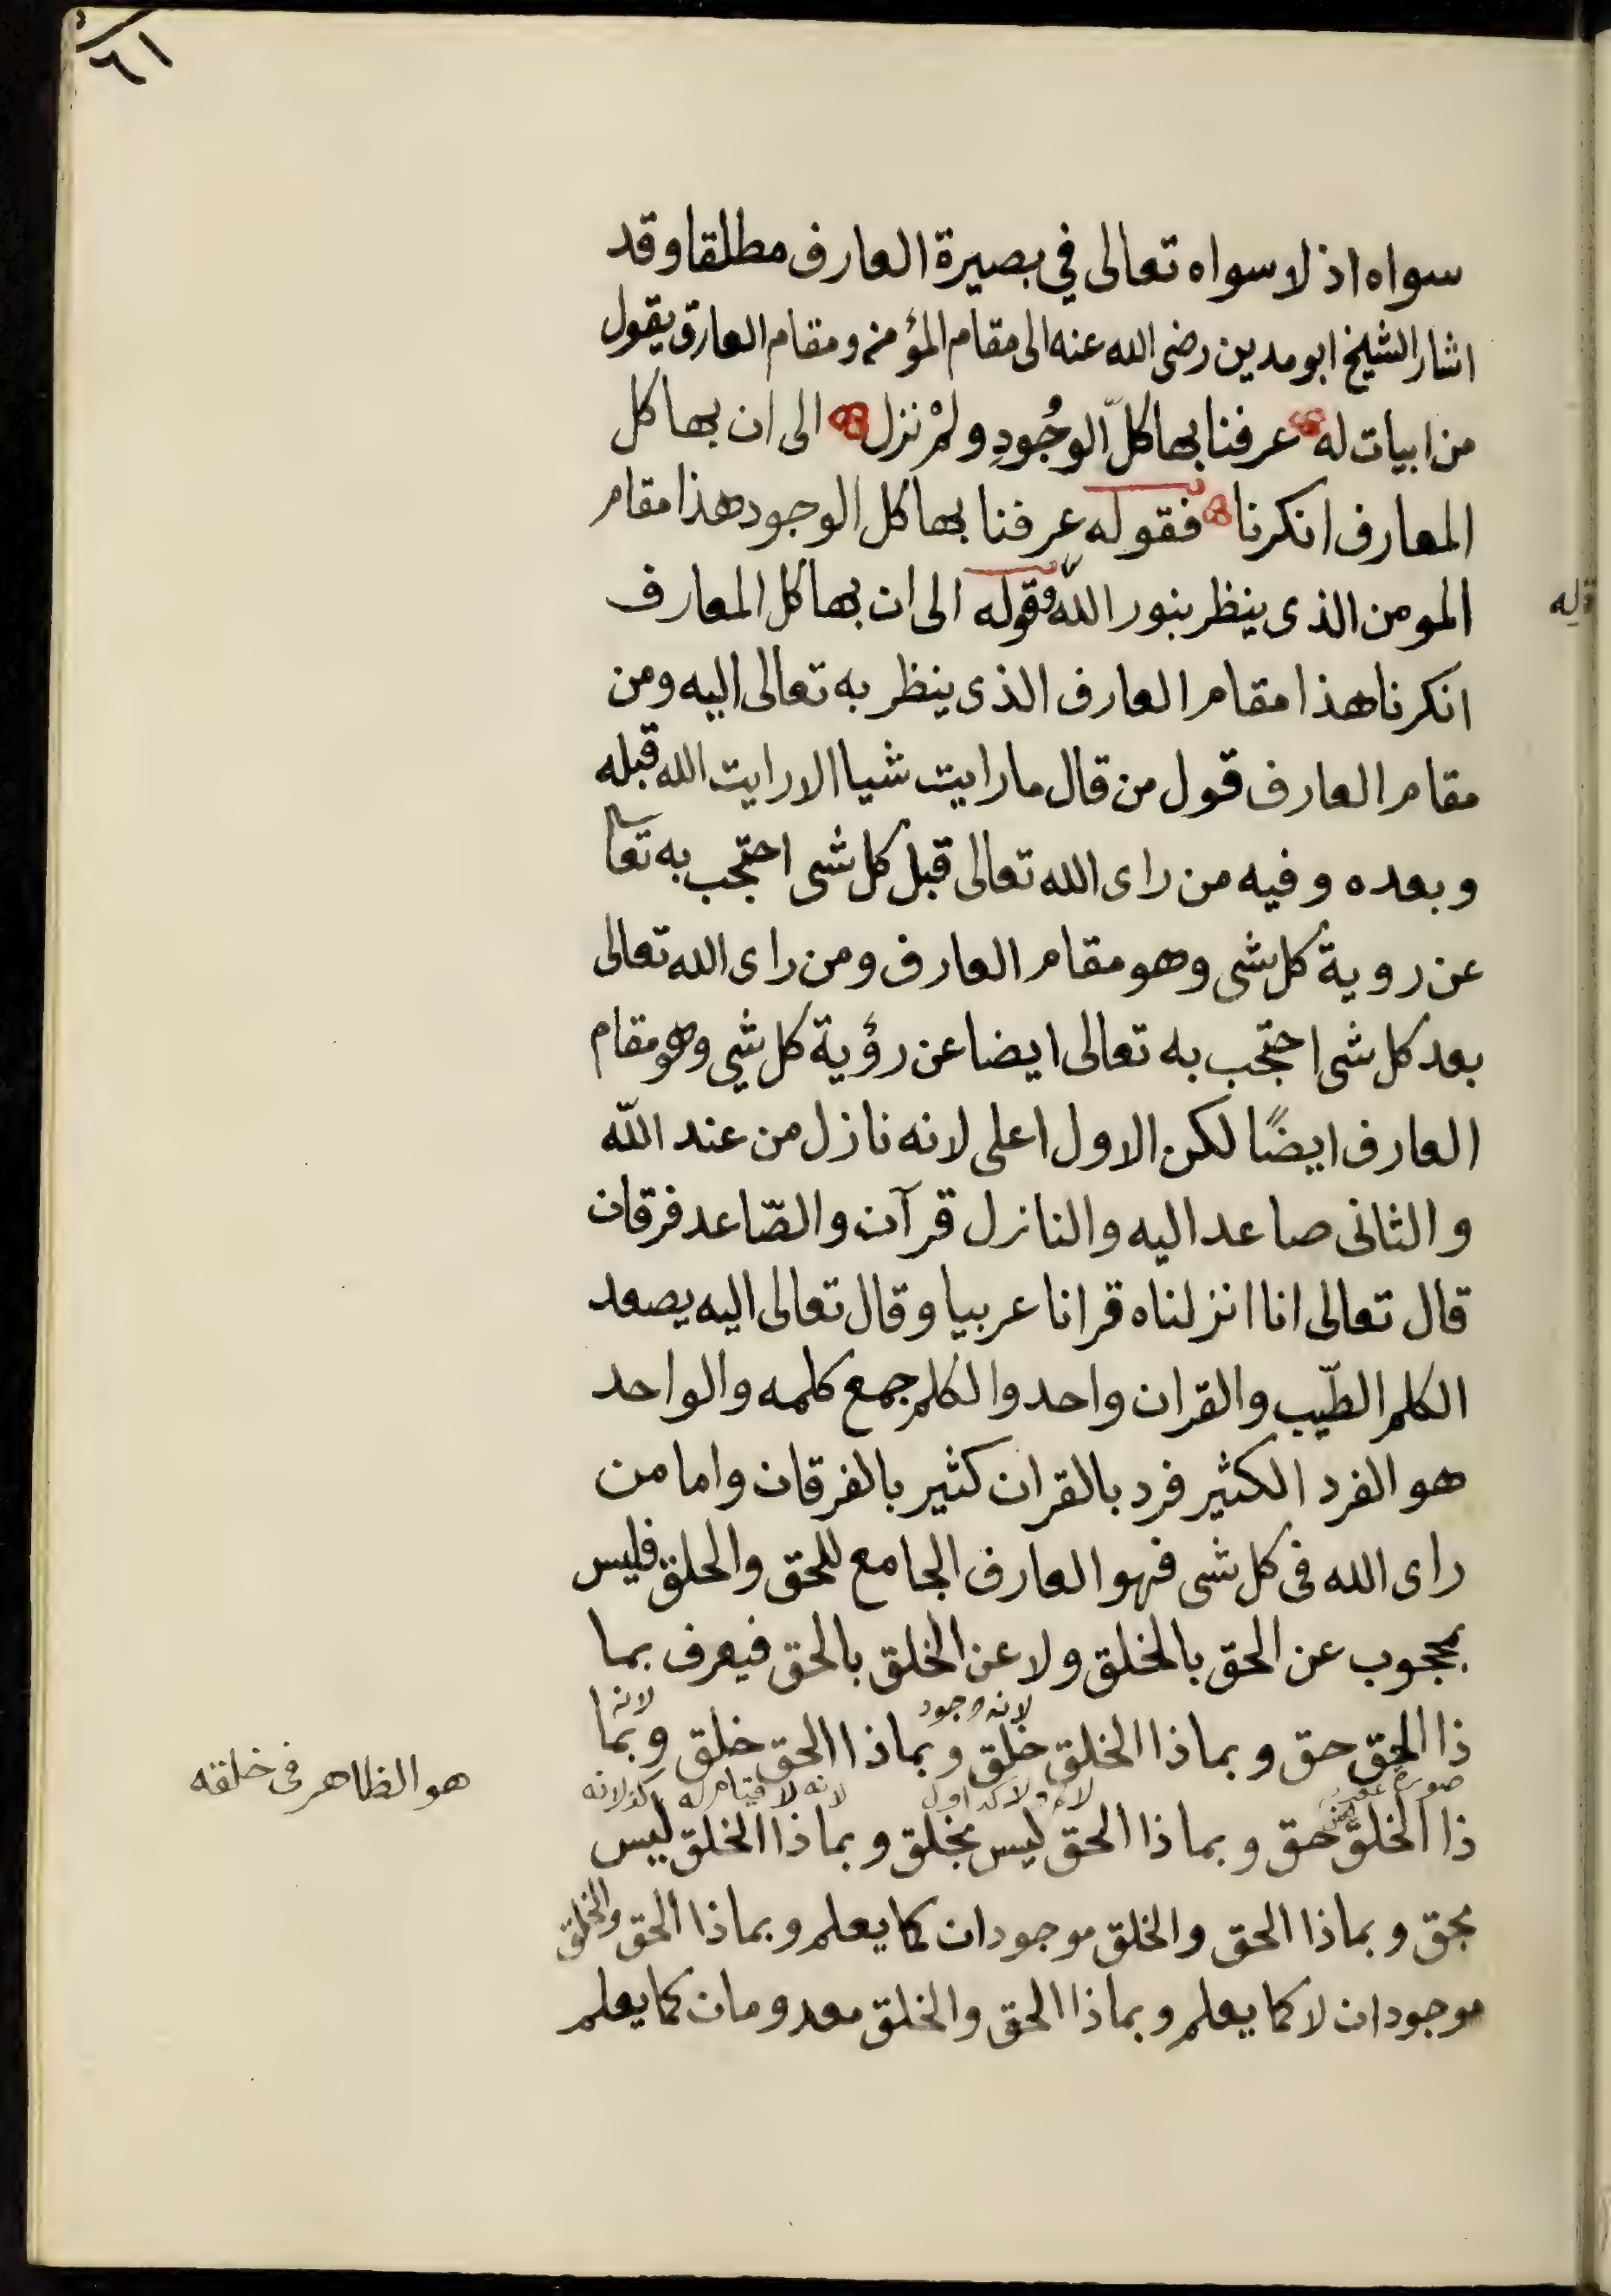 ٦١
سواه اذ لا سواه تعالى في بصيرة العارف مطلقا وقد
اشار الشيخ ابو مدين رضى الله عنه الى مقام المؤمن ومقام العارف يقول
من ابيات له عرفنا بها كلّ الوجُودِ ولمْ نزل الى ان بها كل
المعارف انكرنا فقوله عرفنا بها كل الوجود هذا مقام
المومن الذى ينظر بنور اللّه وقوله الى ان بها كل المعارف
انكرنا هذا مقام العارف الذى ينظر به تعالى اليه ومن
مقام العارف قول من قال ما رايت شيا الا رايت الله قبله
وبعده وفيه من راى الله تعالى قبل كل شى احتجب به تعالى
عن روية كل شى وهو مقام العارف ومن راى الله تعالى
بعد كل شى احتجب به تعالى ايضا عن رؤية كل شي وهو مقام
العارف ايضًا لكن الاول اعلى لانه نازل من عند اللّه
والثانى صاعد اليه والنازل قرآن والصّاعد فرقان
قال تعالى انا انزلناه قرانا عربيا وقال تعالى اليه يصعد
الكلم الطيّب والقران واحد والكلم جمع كلمه والواحد
هو الفرد الكثير فرد بالقران كثير بالفرقان واما من
راى الله فى كل شى فهو العارف الجامع للحق والخلق فليس
بمحجوب عن الحق بالخلق ولا عن الخلق بالحق فيعرف بما
لانه وجود لانه
ذا الحق حق وبماذا الخلق خلق وبماذا الحق خلق وبما
هو الظاهر فى خلقه
صورة لانه لا قيام له لانه
ذا الخلق حق وبماذا الحق ليس بخلق وبماذا الخلق ليس
بحق وبماذا الحق والخلق موجودان كما يعلم وبماذا الحق والخلق
موجودان لا كما يعلم وبماذا الحق والخلق معدومان كما يعلم